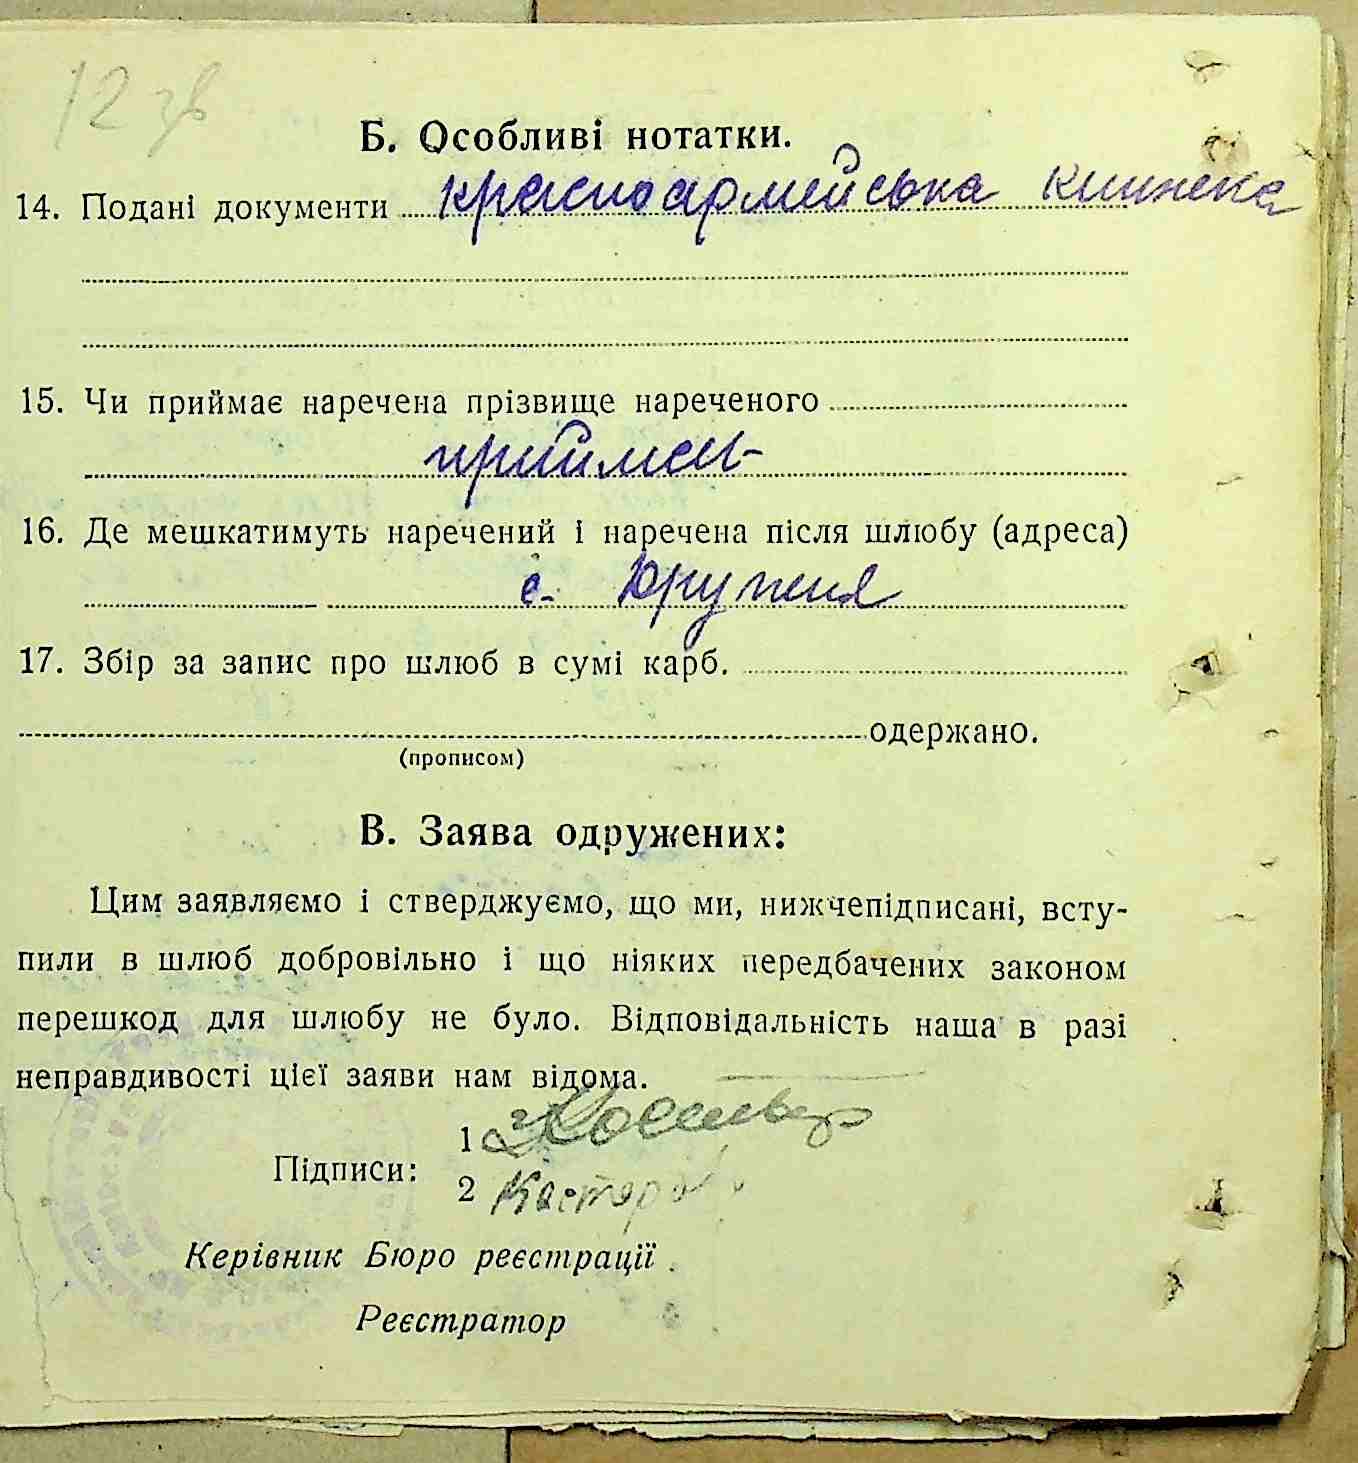 12 зв
Б. Особливі нотатки.
14. Подані документи красноармейська книжка
15. Чи приймає наречена прізвище нареченого
приймає
16. Де мешкатимуть наречений і наречена після шлюбу (адреса)
с. Дружня
17. Збір за запис про шлюб в сумі карб.
одержано.
(прописом)
В. Заява одружених:
Цим заявляємо і стверджуємо, що ми, нижчепідписані, всту-
пили в шлюб добровільно і що ніяких передбачених законом
перешкод для шлюбу не було. Відповідальність наша в разі
неправдивості цієї заяви нам відома.
1
Підписи:
2
Керівник Бюро реєстрації
Реєстратор